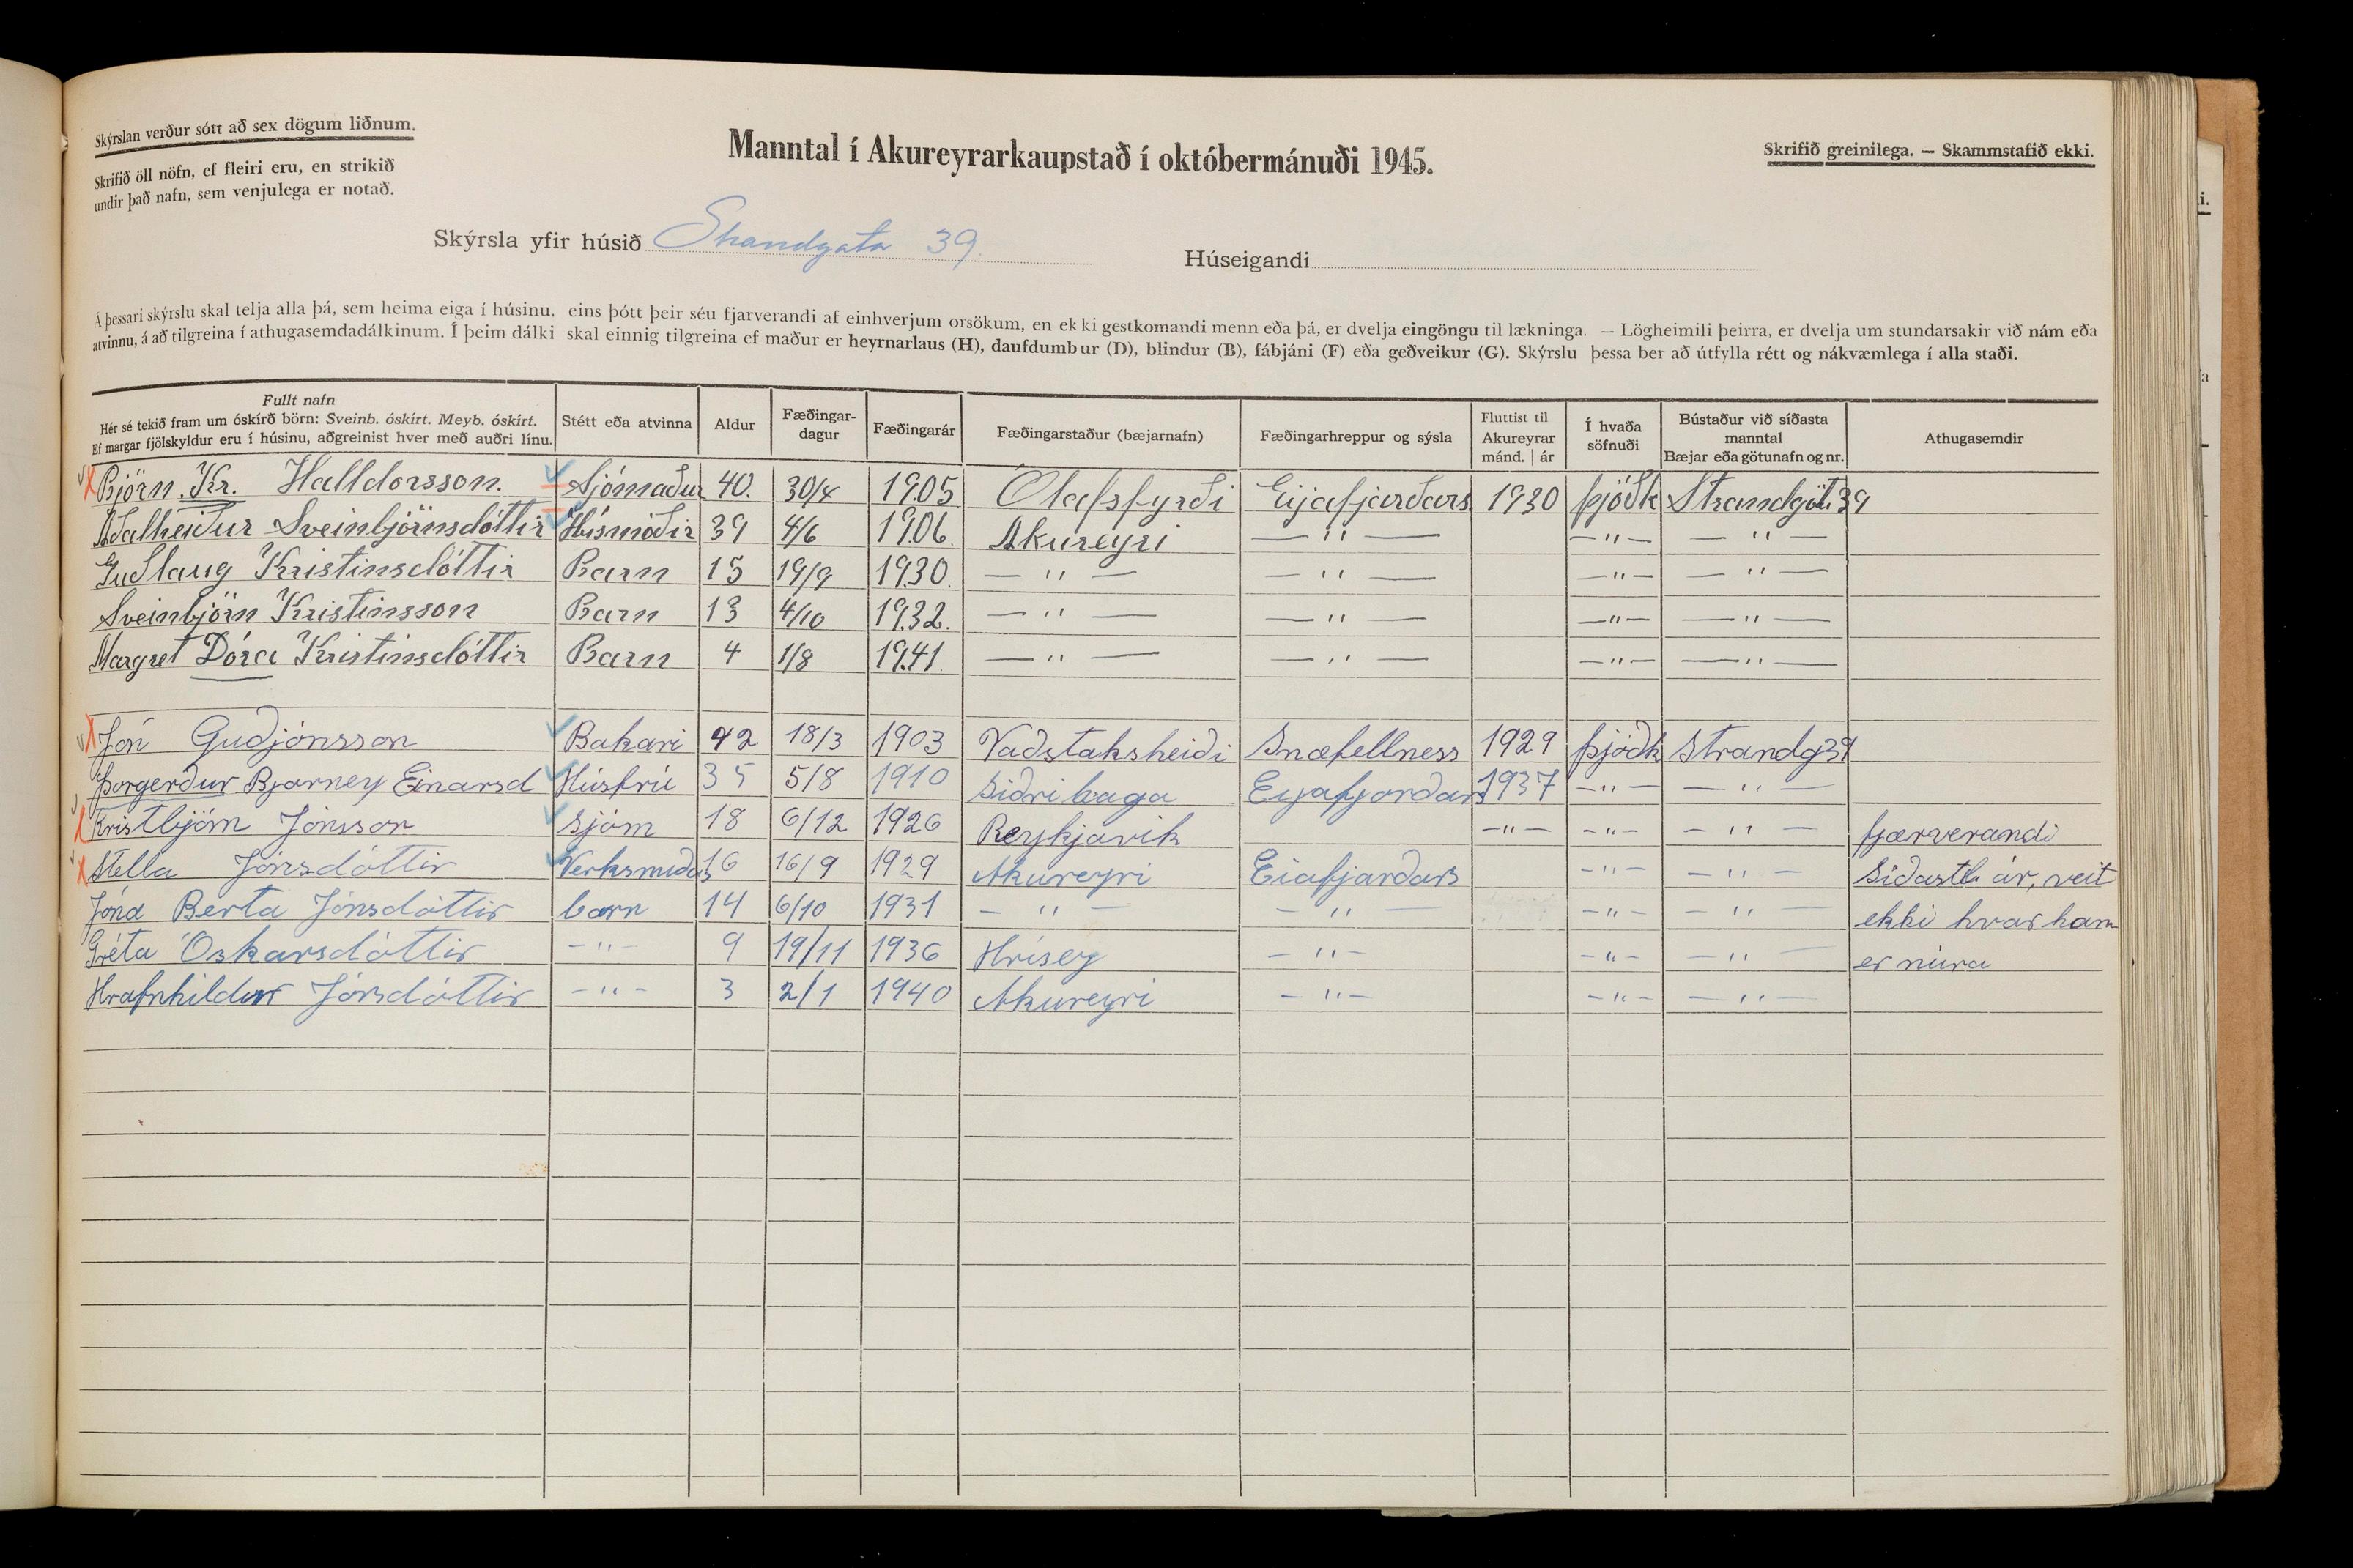 Skýrslan verður sótt að sex dögum liðnum.
Skrifið öll nöfn, ef fleiri eru, en strikið
undir það nafn, sem venjulega er notað.
Manntal í Akureyrarkaupstað í októbermánuði 1945.
Skrifið greinilega. — Skammstafið ekki.
Skýrsla yfir húsið Strandgata 39.
Húseigandi
Á þessari skýrslu skal telja alla þá, sem heima eiga í húsinu, eins þótt þeir séu fjarverandi af einhverjum orsökum, en ekki gestkomandi menn eða þá, er dvelja eingöngu til lækninga. — Lögheimili þeirra, er dvelja um stundarsakir við nám eða
atvinnu, á að tilgreina í athugasemdadálkinum. Í þeim dálki skal einnig tilgreina ef maður er heyrnarlaus (H), daufdumbur (D), blindur (B), fábjáni (F) eða geðveikur (G). Skýrslu þessa ber að útfylla rétt og nákvæmlega í alla staði.
Fullt nafn
Hér sé tekið fram um óskírð börn: Sveinb. óskírt. Meyb. óskírt.
Ef margar fjölskyldur eru í húsinu, aðgreinist hver með auðri línu.
Stétt eða atvinna
Aldur
Fæðingar-
dagur
Fæðingarár
Fæðingarstaður (bæjarnafn)
Fæðingarhreppur og sýsla
Fluttist til
Akureyrar
mánd. | ár
Í hvaða
söfnuði
Bústaður við síðasta
manntal
Bæjar eða götunafn og nr.
Athugasemdir
Björn. Kr. Halldorsson. Sjómaður 40. 30/4 1905 Ólafsfyrði Eyjafjarðars 1930 þjóðk Strandgöt. 39
Aðalheiður Sveinbjörnsdóttir Húsmóðir 39 4/6 1906. Akureyri — " — — " — — " —
Guðlaug Kristinsdóttir Barn 15 19/9 1930. — " — — " — — " — — " —
Sveinbjörn Kristinsson Barn 13 4/10 1932. — " — — " — — " — — " —
Margret Dóra Kristinsdóttir Barn 4 1/8 1941. — " — — " — — " — — " —
Jón Guðjónsson Bakari 42 18/3 1903 Vaðstaksheiði Snæfellness 1929 þjóðk Strandg 39
Þorgerður Bjarney Einarsd Húsfrú 35 5/8 1910 Siðri baga Eyjafjarðars 1937 — " — — " —
Kristbjörn Jónsson sjóm 18 6/12 1926 Reykjavík — " — — " — — " — fjærverandi
Stella Jónsdóttir Verksmiðas 16 16/9 1929 Akureyri Eiafjarðars — " — — " — Síðastl. ár, veit
Jóna Berta Jónsdóttir barn 14 6/10 1931 — " — — " — — " — — " — ekki hvar hann
Gréta Óskarsdóttir — " — 9 19/11 1936 Hrísey — " — — " — — " — er núna
Hrafnhildur Jónsdóttir — " — 3 2/1 1940 Akureyri — " — — " — — " —